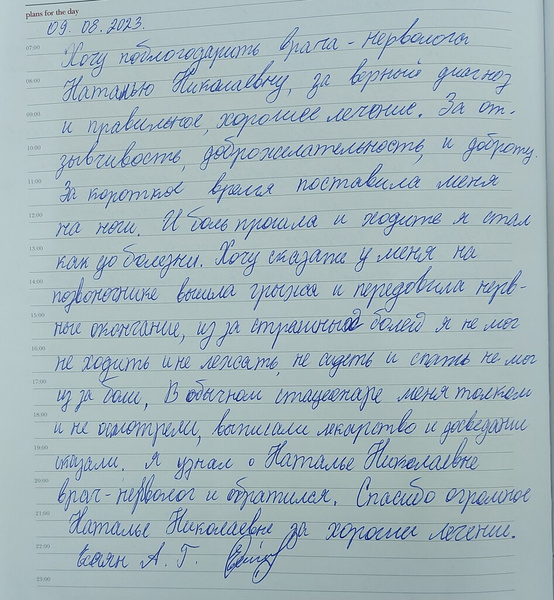 plans for the day
09. 08. 2023.
07:00
Хочу поблогодарить врача - нерволога
08:00
Наталью Николаевну, за верный диагноз
09:00
и правильное, хорошее лечение. За от-
10:00
зывчивость, доброжелательность, и доброту.
11:00
За короткое время поставила меня
12:00
на ноги. И боль прошла и ходить я стал
13:00
как до болезни. Хочу сказать у меня на
14:00
позвоночнике вышла грыжа и передовила нерв-
15:00
ные окончание, из за страшных болей я не мог
16:00
не ходить и не лежать, не сидеть и спать не мог
17:00
из за боли, В обычном стационаре меня толком
18:00
и не осмотрели, выписали лекарство и досведания
19:00
сказали. Я узнал о Наталье Николаевне
20:00
врач - нерволог и обратился. Спасибо огромное
21:00
Наталье Николаевне за хорошии лечение.
22:00
А. Г.
23:00